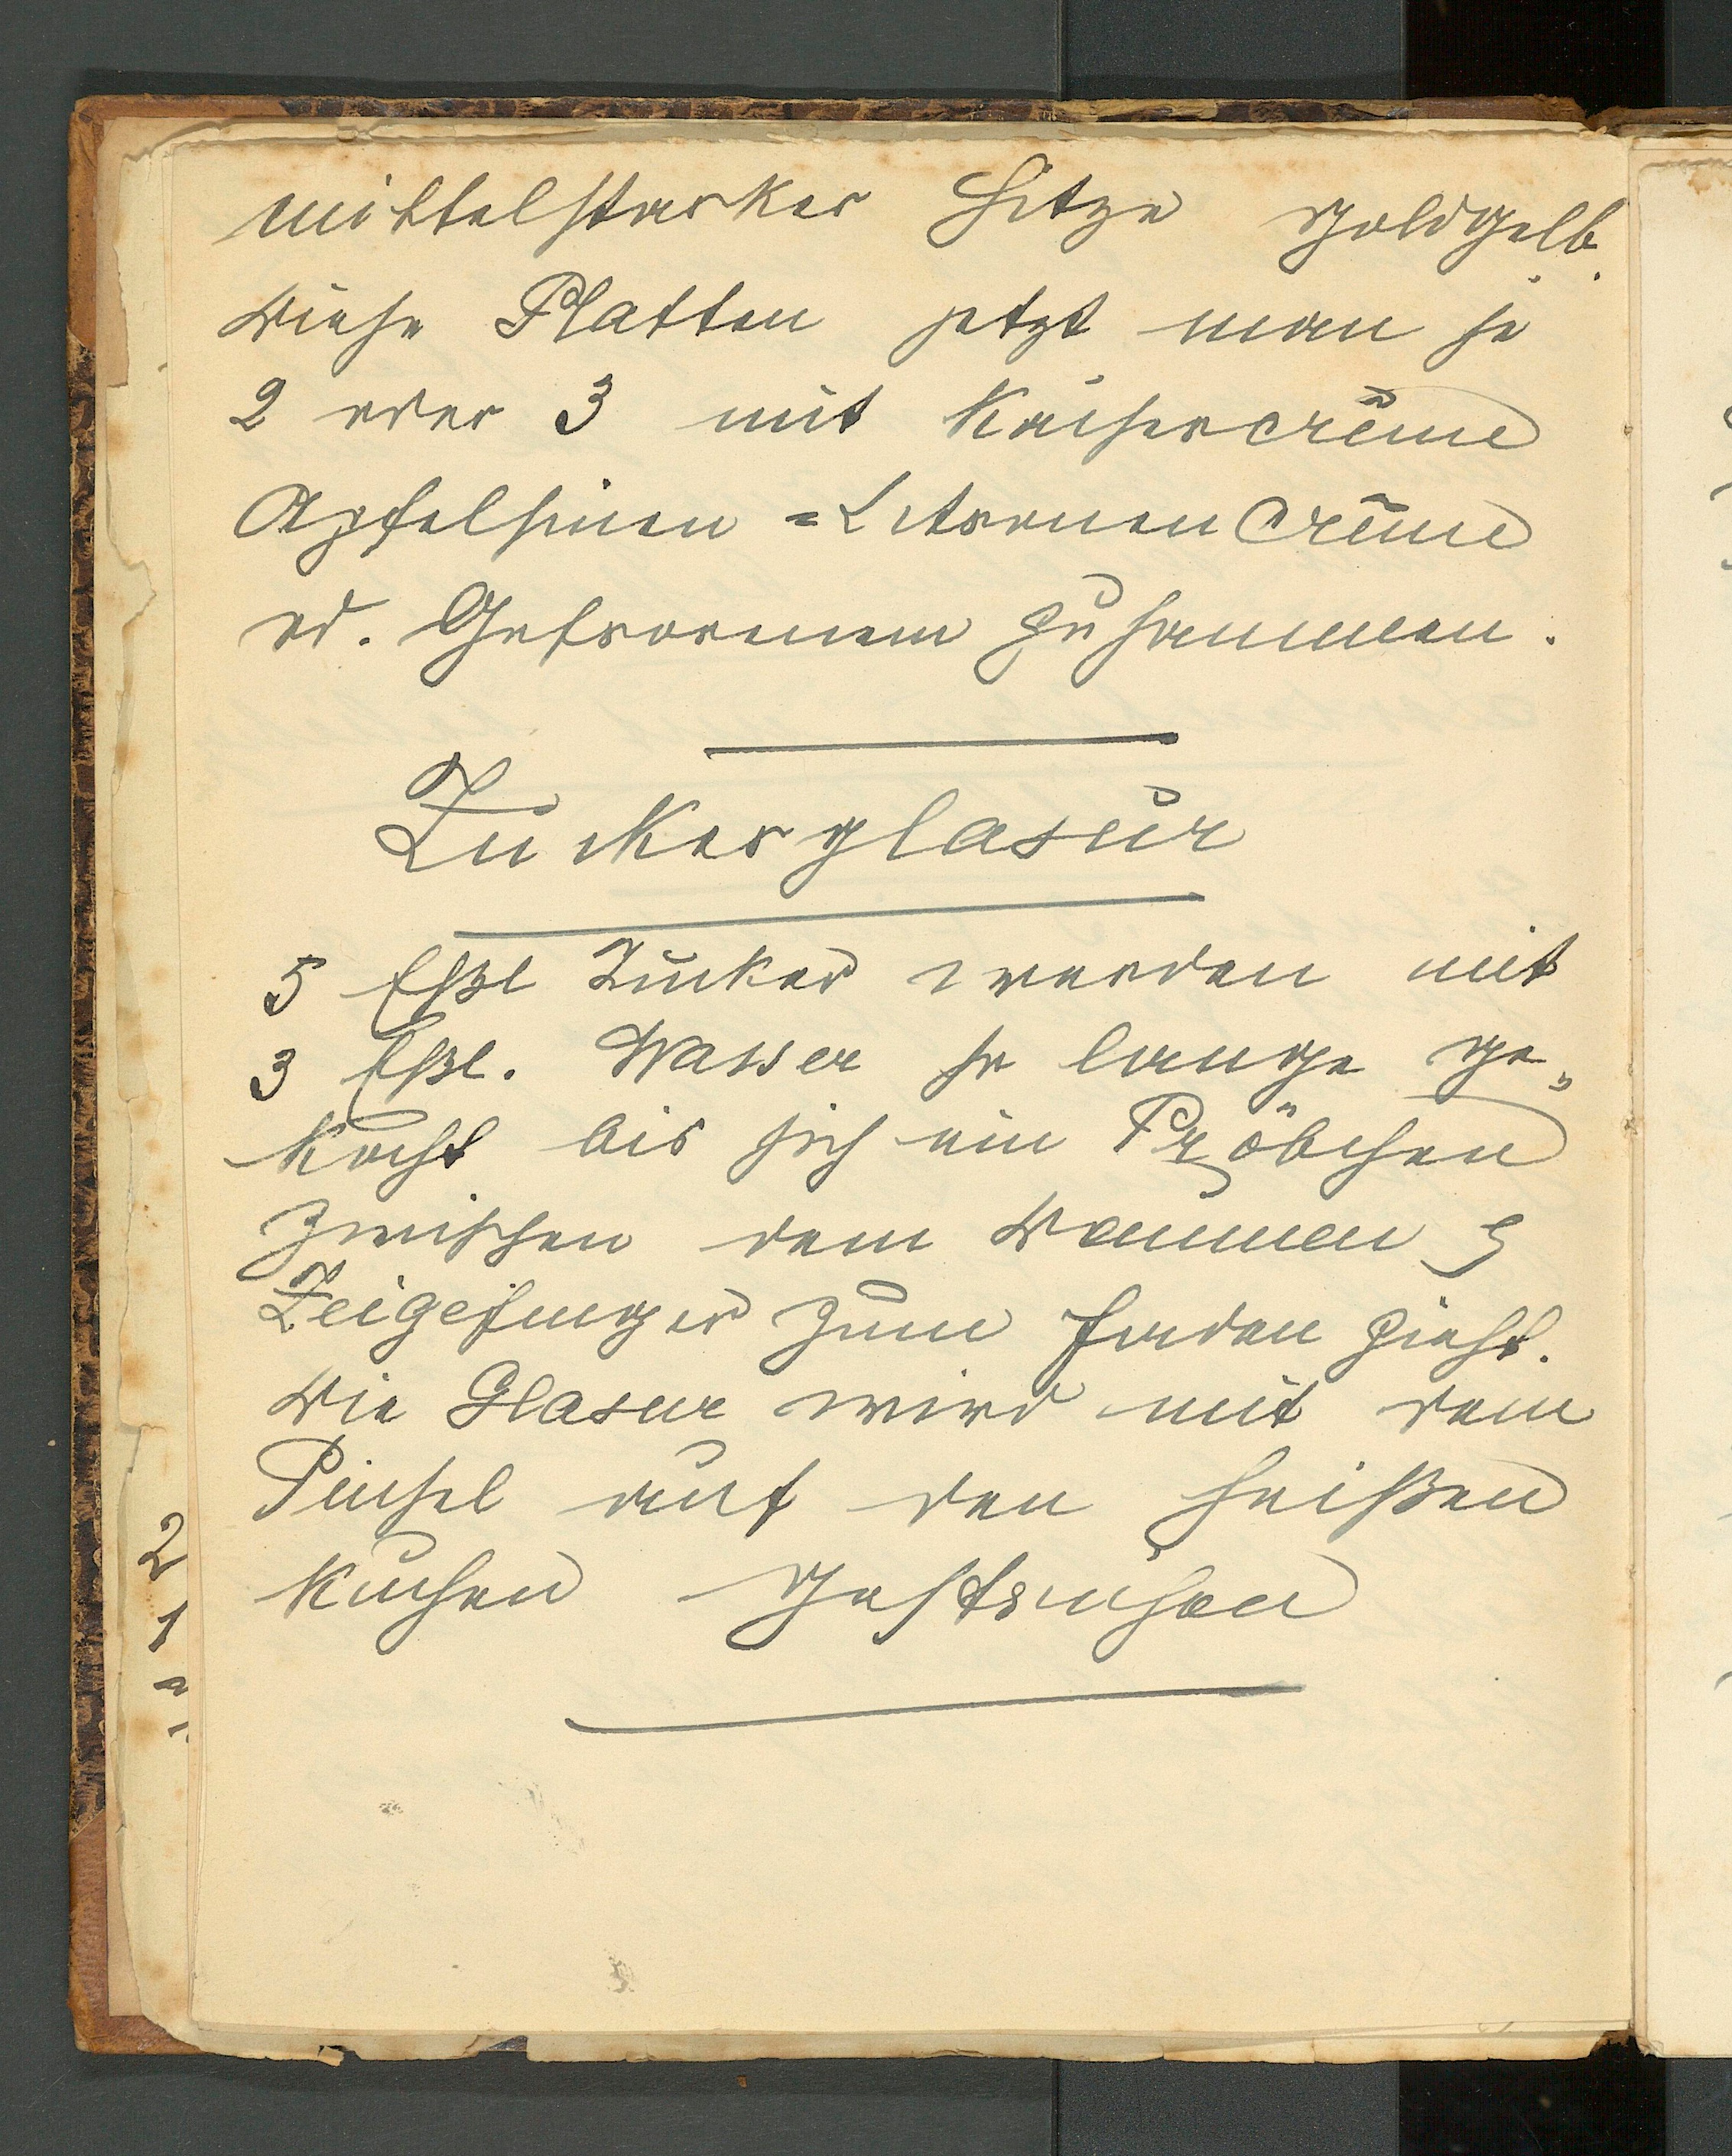 mittelstarker Hitze goldgelb.
Diese Platten setzt man je
2 oder 3 mit Kaisercrême
Apfelsinen = Zitronencrême
od. Gefrorenem zusammen.
Zuckerglasur
5 Eßl Zucker werden mit
3 Eßl. Wasser so lange ge„
kocht bis sich ein Pröbchen
zwischen dem Daumen &
Zeigefinger zum Faden zieht.
Die Glasur wird mit dem
Pinsel auf den heißen
Kuchen gestrichen
2
1